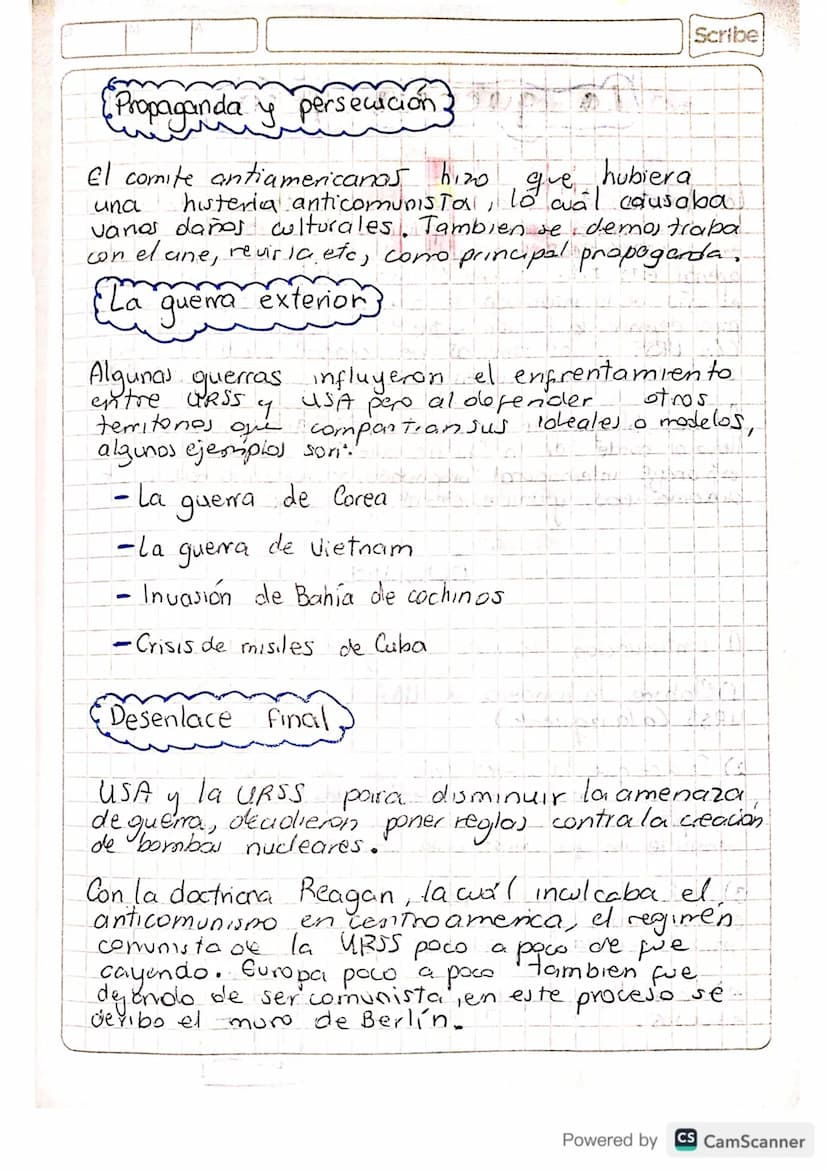 Scribe
Propaganda y persecución
El comite antiamericanos hizo que hubiera
una histeria anticomunista, lo cuál causaba
varios daños culturales. Tambien se demostraba
con el cine, revista, etc, como principal propaganda.
La guerra exterior
Algunas guerras influyeron el enfrentamiento
entre URSS y USA pero al defender otros
territorios que compartian sus ideales o modelos,
algunos ejemplos son:
- La guerra de Corea
- La guerra de Vietnam
- Invasión de Bahía de cochinos
- Crisis de misiles de Cuba
Desenlace final
USA y la URSS para disminuir la amenaza
de guerra, decidieron poner reglas contra la creación
de bombas nucleares.
Con la doctrina Reagan, la cuál inculcaba el
anticomunismo en centroamerica, el regimen
comunista de la URSS poco a poco de fue
cayendo. Europa poco a poco tambien fue
dejando de ser comunista, en este proceso se
deribo el muro de Berlín.
Powered by CS CamScanner